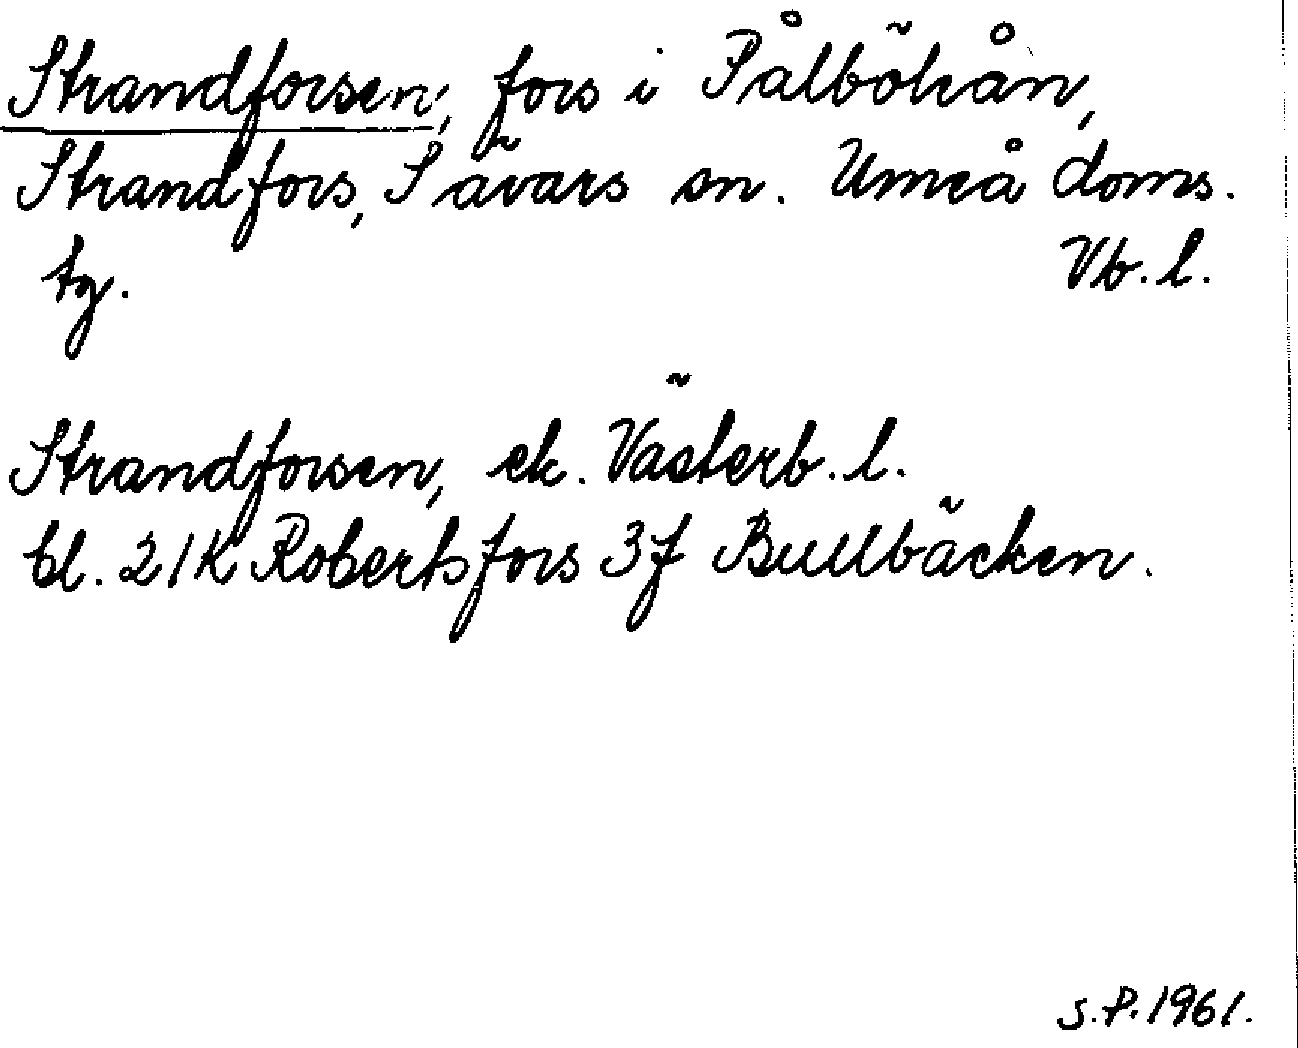 Strandforsen, fors i Pålböleån,
Strandfors, Sävars sn. Umeå doms.
tg. Vb. l.
Strandforsen, ek. Västerb. l.
bl. 21K Robertsfors 3f Bullbäcken.
S.P. 1961.